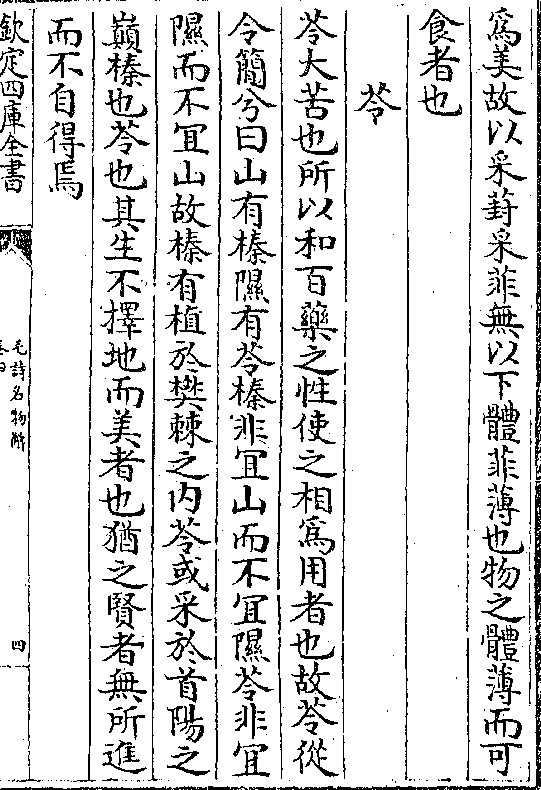 爲美故以采葑采菲無以下體菲薄也物之體薄而可
食者也
苓
苓大苦也所以和百藥之性使之相爲用者也故苓從
令簡兮曰山有榛隰有苓榛非宜山而不宜隰苓非宜
隰而不宜山故榛有植於樊棘之内苓或采於首陽之
巔榛也苓也其生不擇地而美者也猶之賢者無所進
而不自得焉
欽定四庫全書
毛詩名物解
四